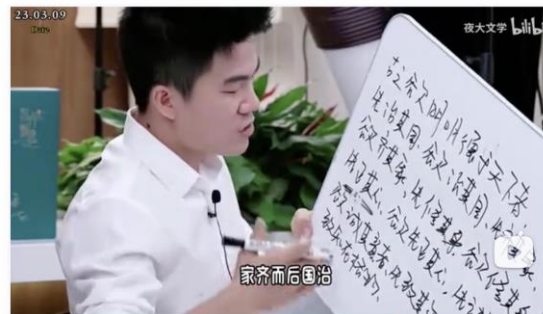 23.03.09
Date
夜大文学 bilibi
古之欲明明德于天下者
先治其国,欲治其国,先齐其家,
欲齐其家,先修其身,欲修其身,
先正其心,欲正其心,先
欲诚其意者,先致其
致知在格物
家齐而后国治